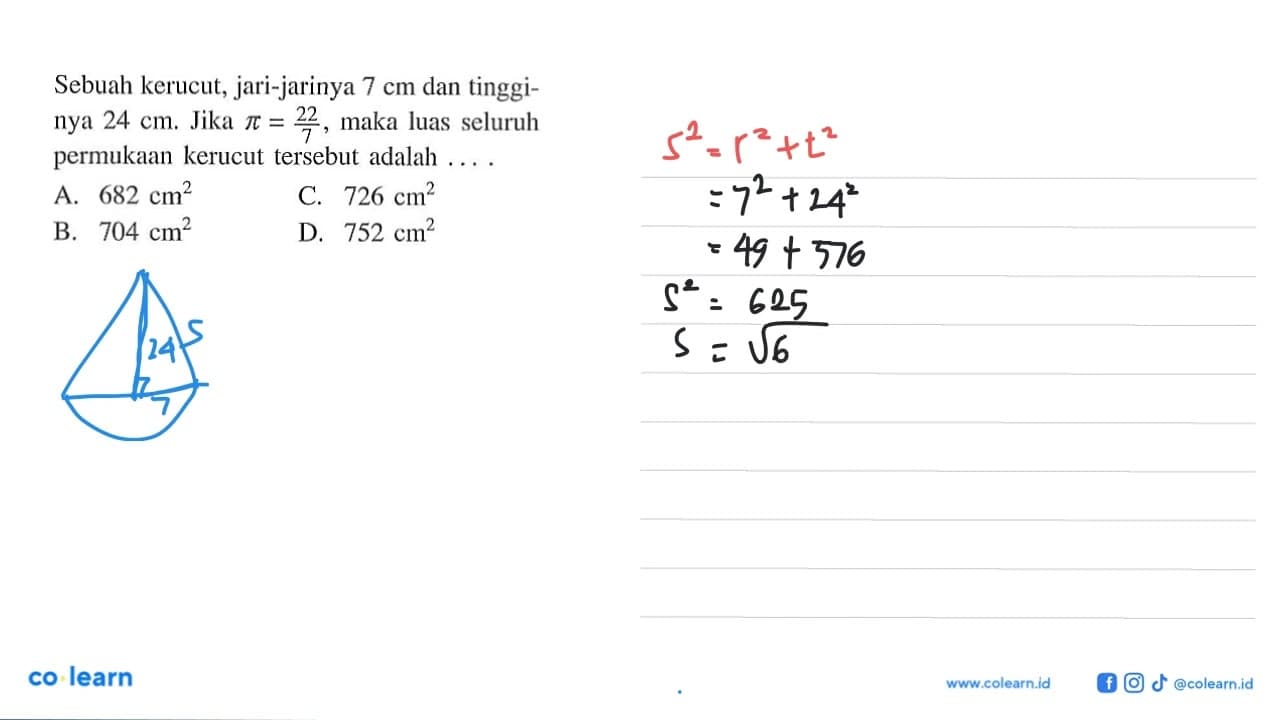 Sebuah kerucut, jari-jarinya 7 cm dan tinggi-
nya 24 cm. Jika π = 22/7, maka luas seluruh
permukaan kerucut tersebut adalah ....
A. 682 cm²
C. 726 cm²
B. 704 cm²
D. 752 cm²
24
S
7
S² = r² + t²
= 7² + 24²
= 49 + 576
S² = 625
S = √6
co learn
www.colearn.id
@colearn.id